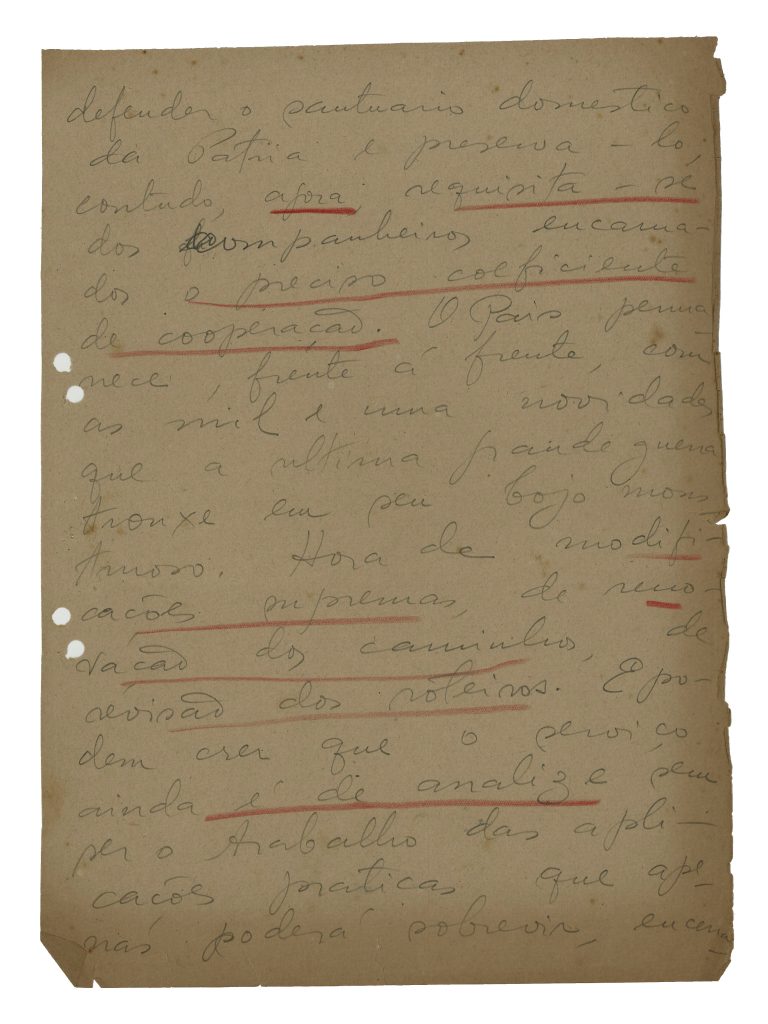 defender o santuario domestico
da Pátria e preserva-lo,
contudo, agora, requisita-se
dos companheiros encarna-
dos o preciso coeficiente
de cooperação. O País perma-
nece, frente á frente, com
as mil e uma novidades
que a ultima grande guerra
trouxe em seu bojo mons-
truoso. Hora de modifi-
cações supremas, de reno-
vação dos caminhos, de
revisão dos roteiros. E po-
dem crer que o serviço
ainda é de analize, sem
ser o trabalho das apli-
cações praticas que ape-
nas poderá sobrevir, encerra-